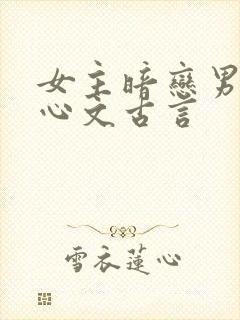 女主暗戀男
心文古言
雪衣蓮心